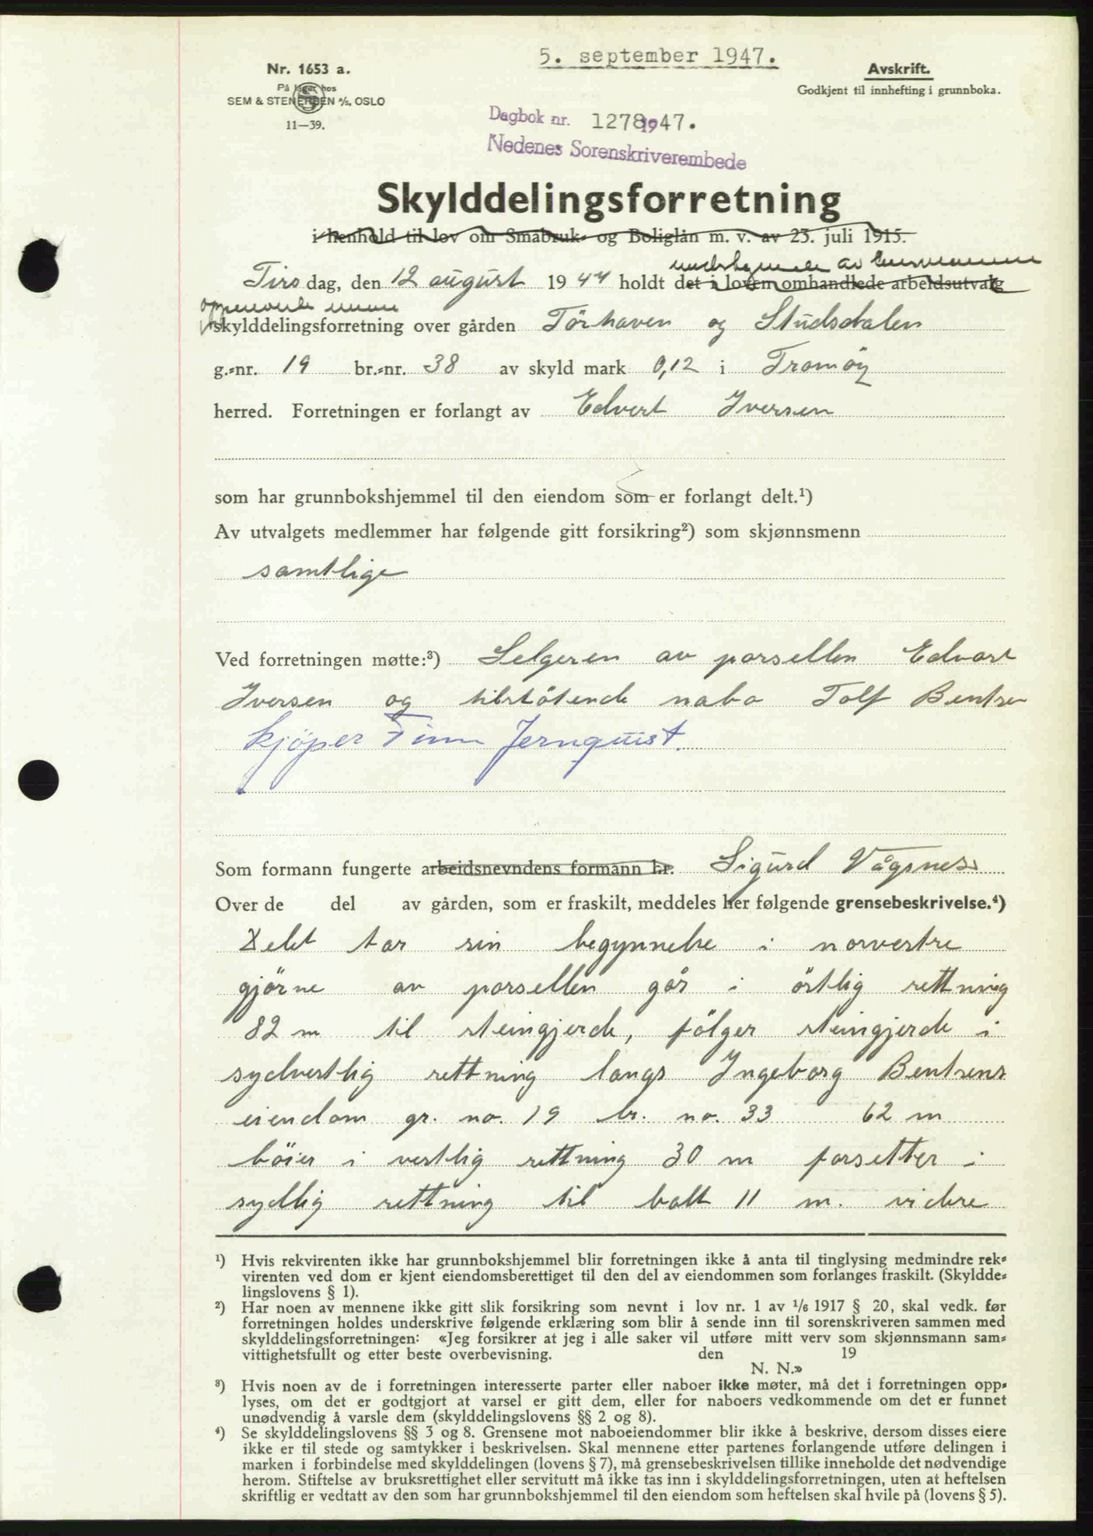 5. september 1947.
Nr. 1653 a.
På lager hos
SEM & STENERSEN A/S, OSLO
11—39.
Avskrift.
Godkjent til innhefting i grunnboka.
Dagbok nr. 1278 1947.
Nedenes Sorenskriverembede
Skylddelingsforretning
i henhold til lov om Småbruk- og Boliglån m. v. av 23. juli 1915.
undertegnede av lensmannen
Tirsdag, den 12 august 1947 holdt det i loven omhandlede arbeidsutvalg
oppnevnte menn
skylddelingsforretning over gården Törhaven og Studsdalen
g.-nr. 19 br.-nr. 38 av skyld mark 0,12 i Tromöy
herred. Forretningen er forlangt av Edvart Iversen
som har grunnbokshjemmel til den eiendom som er forlangt delt.¹)
Av utvalgets medlemmer har følgende gitt forsikring²) som skjønnsmenn
samtlige
Ved forretningen møtte:³) Selgeren av parsellen Edvart
Iversen og tilstötende nabo Tolf Bentsen
kjöper Finn Jernquist.
Som formann fungerte arbeidsnevndens formann hr. Sigurd Vågsnes
Over de del av gården, som er fraskilt, meddeles her følgende grensebeskrivelse.⁴)
Delet tar sin begynnelse i norvestre
gjörne av parsellen går i östlig rettning
82 m til steingjerde, fölger steingjerde i
sydvestlig rettning langs Ingeborg Bentsens
eiendom gr. no. 19 br. no. 33 62 m
böier i vestlig rettning 30 m forsetter i
sydlig rettning til bolt 11 m. videre
¹) Hvis rekvirenten ikke har grunnbokshjemmel blir forretningen ikke å anta til tinglysing medmindre rek-
virenten ved dom er kjent eiendomsberettiget til den del av eiendommen som forlanges fraskilt. (Skyldde-
lingslovens § 1).
²) Har noen av mennene ikke gitt slik forsikring som nevnt i lov nr. 1 av 1/6 1917 § 20, skal vedk. før
forretningen holdes underskrive følgende erklæring som blir å sende inn til sorenskriveren sammen med
skylddelingsforretningen: «Jeg forsikrer at jeg i alle saker vil utføre mitt verv som skjønnsmann sam-
vittighetsfullt og etter beste overbevisning. den 19
N. N.»
³) Hvis noen av de i forretningen interesserte parter eller naboer ikke møter, må det i forretningen opp-
lyses, om det er godtgjort at varsel er gitt dem, eller for naboers vedkommende om det er funnet
unødvendig å varsle dem (skylddelingslovens §§ 2 og 8).
⁴) Se skylddelingslovens §§ 3 og 8. Grensene mot naboeiendommer blir ikke å beskrive, dersom disses eiere
ikke er til stede og samtykker i beskrivelsen. Skal mennene etter partenes forlangende utføre delingen i
marken i forbindelse med skylddelingen (lovens § 7), må grensebeskrivelsen tillike inneholde det nødvendige
herom. Stiftelse av bruksrettighet eller servitutt må ikke tas inn i skylddelingsforretningen, uten at heftelsen
skriftlig er vedtatt av den som har grunnbokshjemmel til den eiendom som heftelsen skal hvile på (lovens § 5).